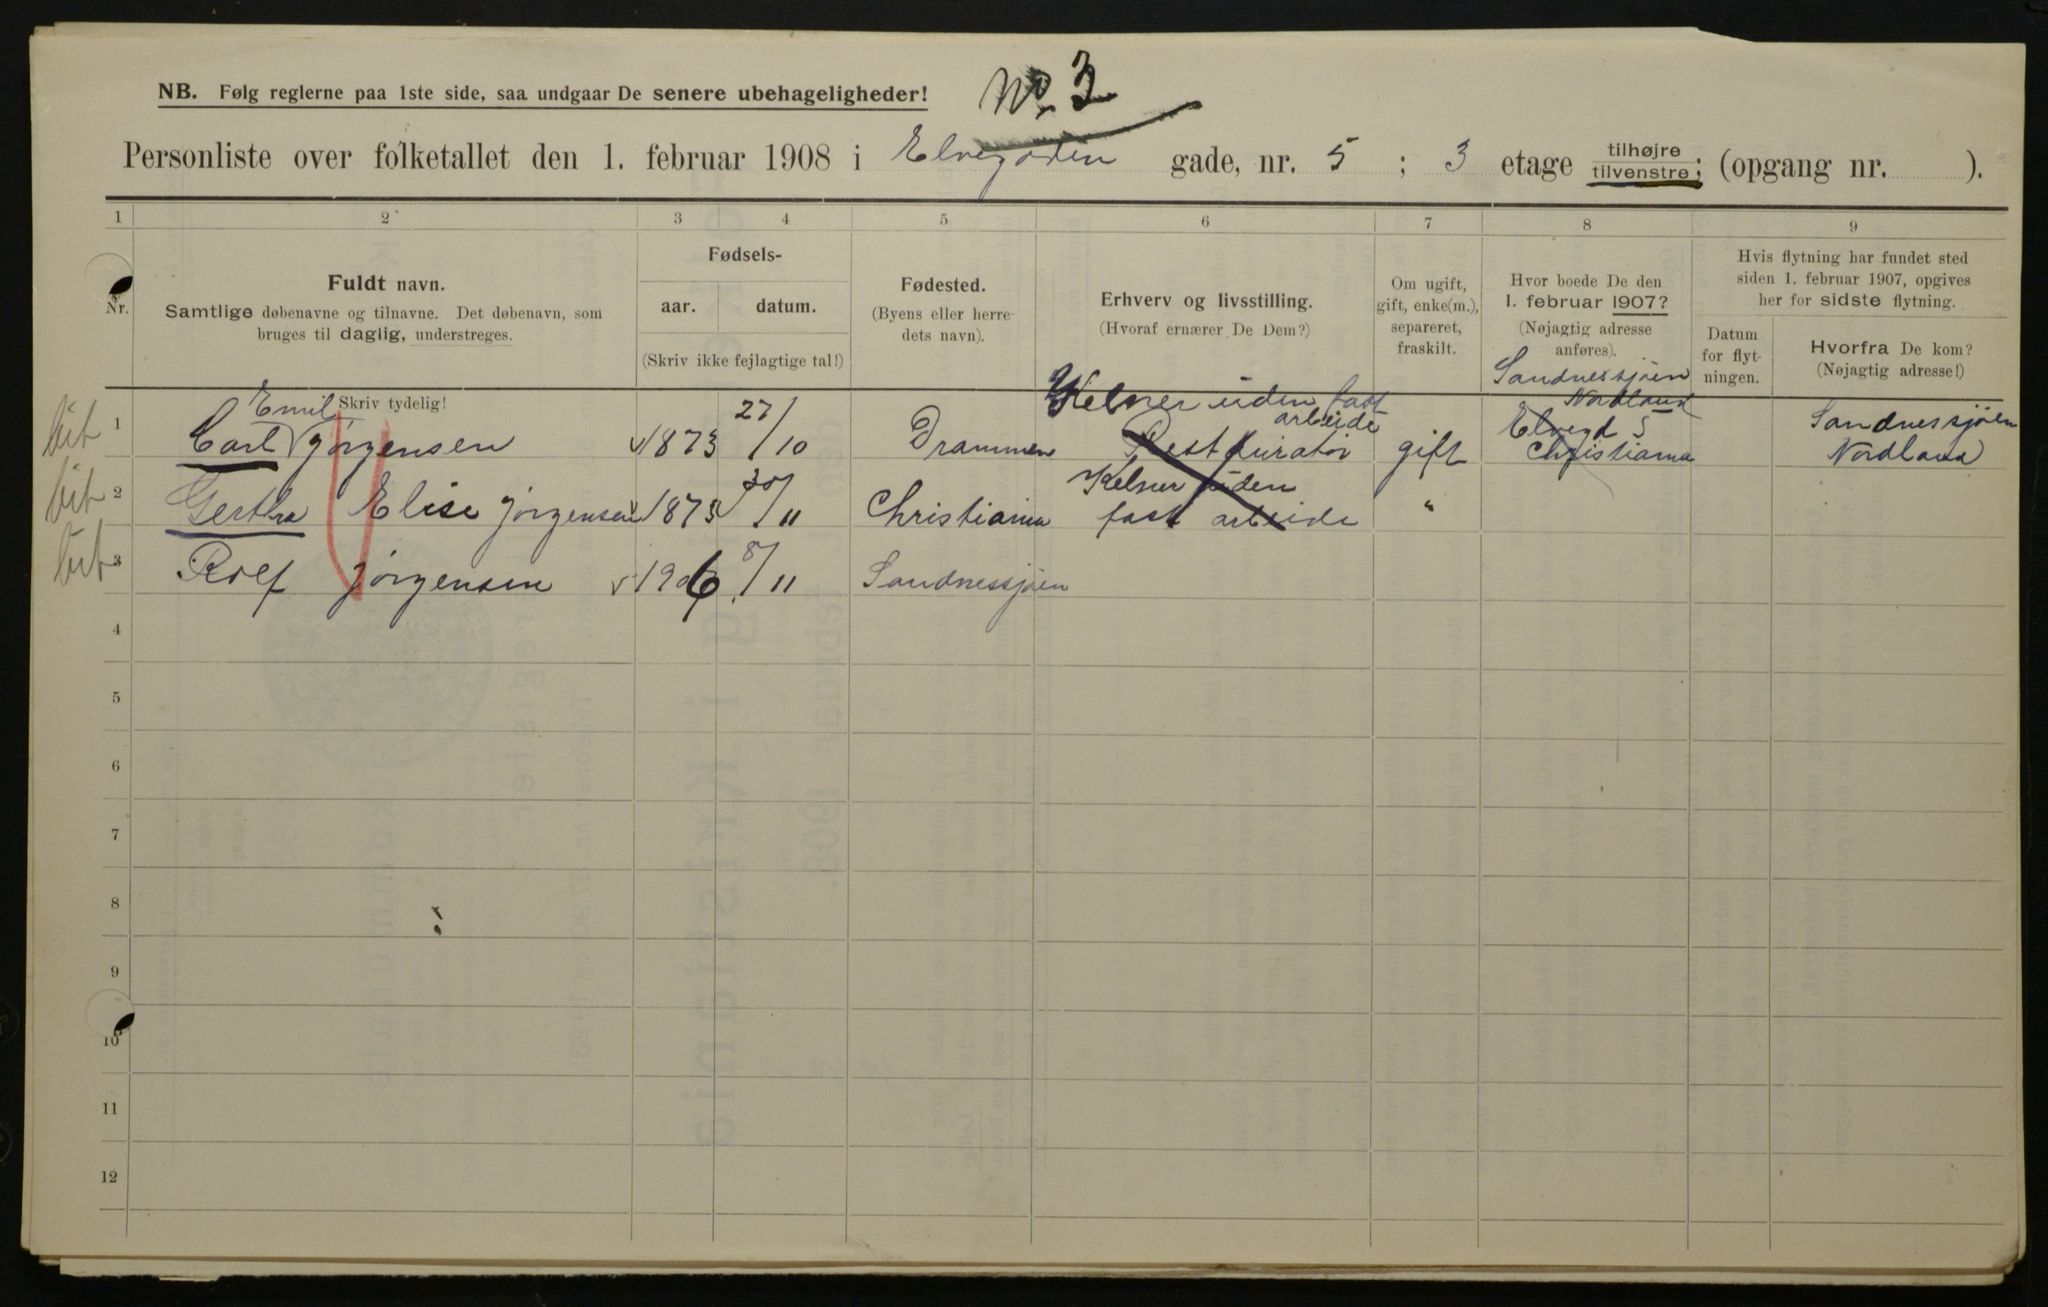 No. 3
NB. Følg reglerne paa 1ste side, saa undgaar De senere ubehageligheder!
Personliste over folketallet den 1. februar 1908 i Elvegaden gade, nr. 5 ; 3 etage tilhøjre tilvenstre; (opgang nr. ).
1 2 3 4 5 6 7 8 9
Nr.
Fuldt navn.
Samtlige døbenavne og tilnavne. Det døbenavn, som
bruges til daglig, understreges.
Skriv tydelig!
Fødsels-
aar. datum.
(Skriv ikke fejlagtige tal!)
Fødested.
(Byens eller herre-
dets navn).
Erhverv og livsstilling.
(Hvoraf ernærer De Dem?)
Om ugift,
gift, enke(m.),
separeret,
fraskilt.
Hvor boede De den
1. februar 1907?
(Nøjagtig adresse
anføres).
Hvis flytning har fundet sted
siden 1. februar 1907, opgives
her for sidste flytning.
Datum
for flyt-
ningen.
Hvorfra De kom?
(Nøjagtig adresse!)
Sandnessjøen
Nordland
Emil Kelner uden fast
arbeide
1 Carl Jørgensen 1873 27/10 Drammen Restauratør gift Elvegd 5 Sandnessjøen
Christiania Nordland
Kelner uden
2 Elise Jørgensen 1873 30/11 Christiania fast arbeide "
3 Rolf Jørgensen 1906 8/11 Sandnessjøen
4
5
6
7
8
9
10
11
12